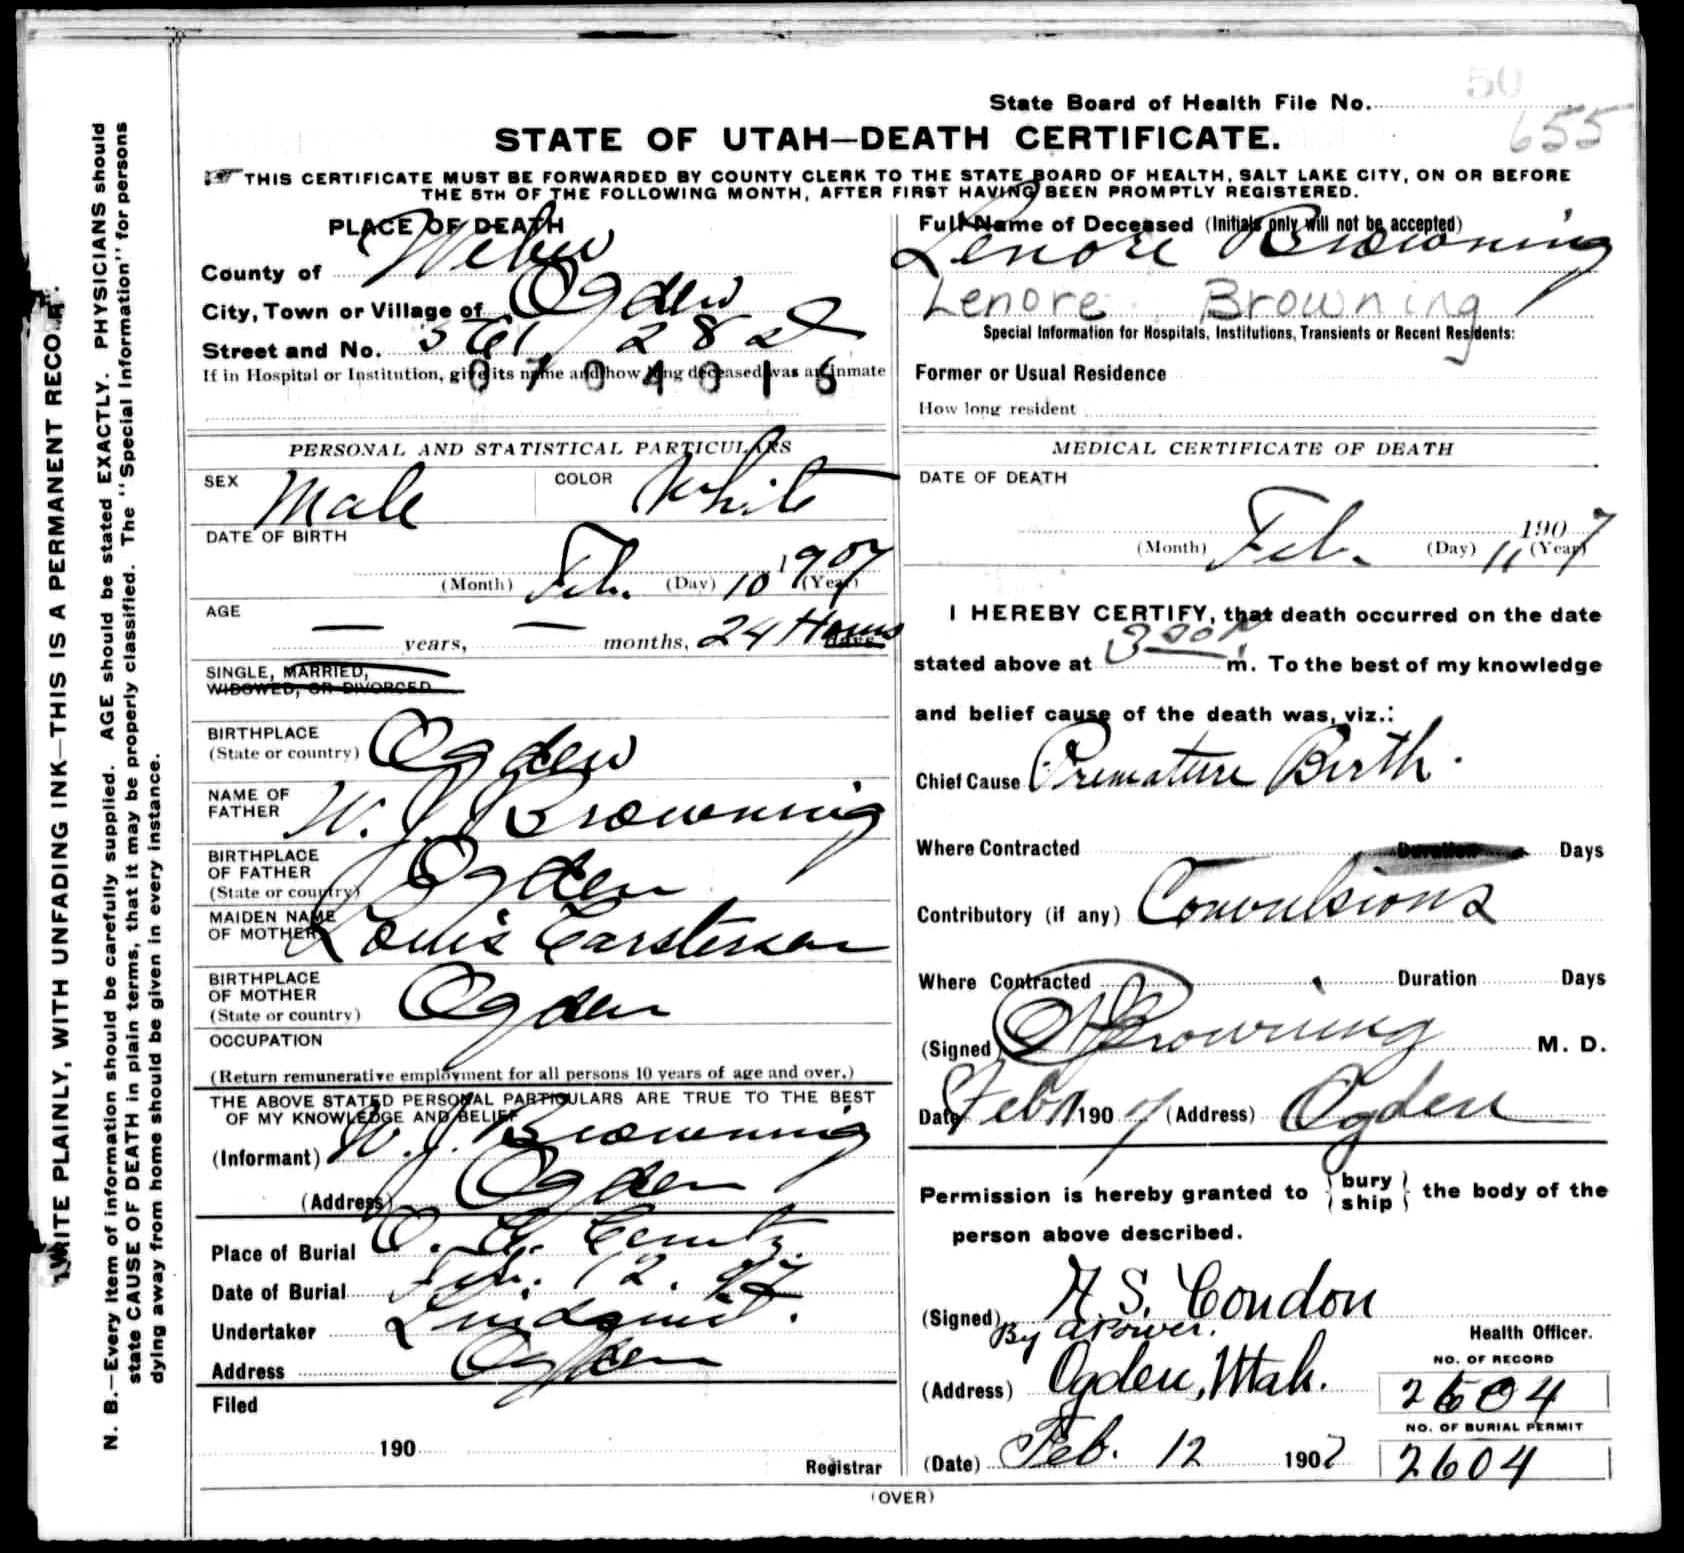 50
State Board of Health File No.
655
STATE OF UTAH—DEATH CERTIFICATE.
THIS CERTIFICATE MUST BE FORWARDED BY COUNTY CLERK TO THE STATE BOARD OF HEALTH, SALT LAKE CITY, ON OR BEFORE
THE 5TH OF THE FOLLOWING MONTH, AFTER FIRST HAVING BEEN PROMPTLY REGISTERED.
PLACE OF DEATH
County of Weber
City, Town or Village of Ogden
Street and No. 561 28 St
If in Hospital or Institution, give its name and how long deceased was an inmate
0704016
PERSONAL AND STATISTICAL PARTICULARS
SEX Male COLOR White
DATE OF BIRTH
(Month) Feb. (Day) 10 1907 (Year)
AGE
— years, — months, 24 Hours days
SINGLE, MARRIED,
WIDOWED, OR DIVORCED
BIRTHPLACE
(State or country) Ogden
NAME OF
FATHER W. J. Browning
BIRTHPLACE
OF FATHER
(State or country) Ogden
MAIDEN NAME
OF MOTHER Louis Carstensen
BIRTHPLACE
OF MOTHER
(State or country) Ogden
OCCUPATION
(Return remunerative employment for all persons 10 years of age and over.)
THE ABOVE STATED PERSONAL PARTICULARS ARE TRUE TO THE BEST
OF MY KNOWLEDGE AND BELIEF
(Informant) W. J. Browning
(Address) Ogden
Place of Burial O. G.
Date of Burial Feb. 12. 07
Undertaker Lindquist.
Address Ogden
Filed
190
Registrar
Full Name of Deceased (Initials only will not be accepted)
Lenore Browning
Lenore Browning
Special Information for Hospitals, Institutions, Transients or Recent Residents:
Former or Usual Residence
How long resident
MEDICAL CERTIFICATE OF DEATH
DATE OF DEATH
(Month) Feb. (Day) 11 1907 (Year)
I HEREBY CERTIFY, that death occurred on the date
stated above at 3 00 P m. To the best of my knowledge
and belief cause of the death was, viz.:
Chief Cause Premature Birth.
Where Contracted Duration Days
Contributory (if any) Convulsions
Where Contracted Duration Days
(Signed) Browning M. D.
Date Feb 11 1907 (Address) Ogden
Permission is hereby granted to bury ship the body of the
person above described.
(Signed) H. S. Condon
By A Power. Health Officer.
(Address) Ogden, Utah.
NO. OF RECORD
2604
NO. OF BURIAL PERMIT
(Date) Feb. 12 1907 2604
(OVER)
WRITE PLAINLY, WITH UNFADING INK—THIS IS A PERMANENT RECORD.
N. B.—Every item of information should be carefully supplied. AGE should be stated EXACTLY. PHYSICIANS should
state CAUSE OF DEATH in plain terms, that it may be properly classified. The "Special Information" for persons
dying away from home should be given in every instance.